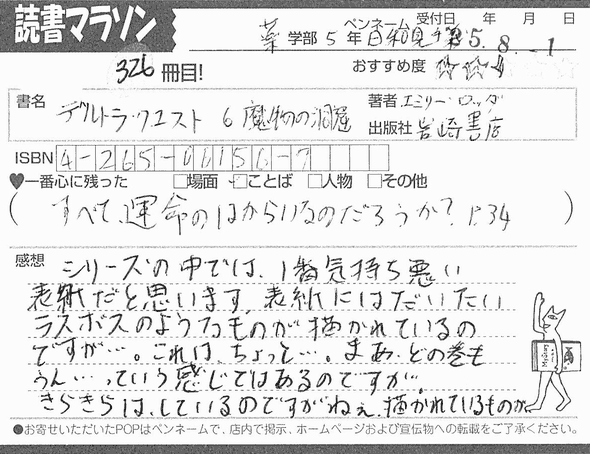 読書マラソン
ペンネーム 受付日 年 月 日
薬 学部 5 年 日和見 5. 8. -1
326 冊目! おすすめ度 ☆☆☆
書名 デルトラ・クエスト 6 魔物の洞窟 著者 エミリー・ロッダ
出版社 岩崎書店
ISBN 4-265-06156-7
♥一番心に残った □場面 □ことば □人物 □その他
(すべて、運命のはからいなのだろうか? P.34)
感想 シリーズの中では、1番気持ち悪い
表紙だと思います。表紙にはだいたい
ラスボスのようなものが描かれているの
ですが…。これは、ちょっと…。まあ、どの巻も
うん…っていう感じではあるのですが。
きらきらは、しているのですがねぇ、描かれているものが
●お寄せいただいたPOPはペンネームで、店内で掲示、ホームページおよび宣伝物への転載をご了承ください。